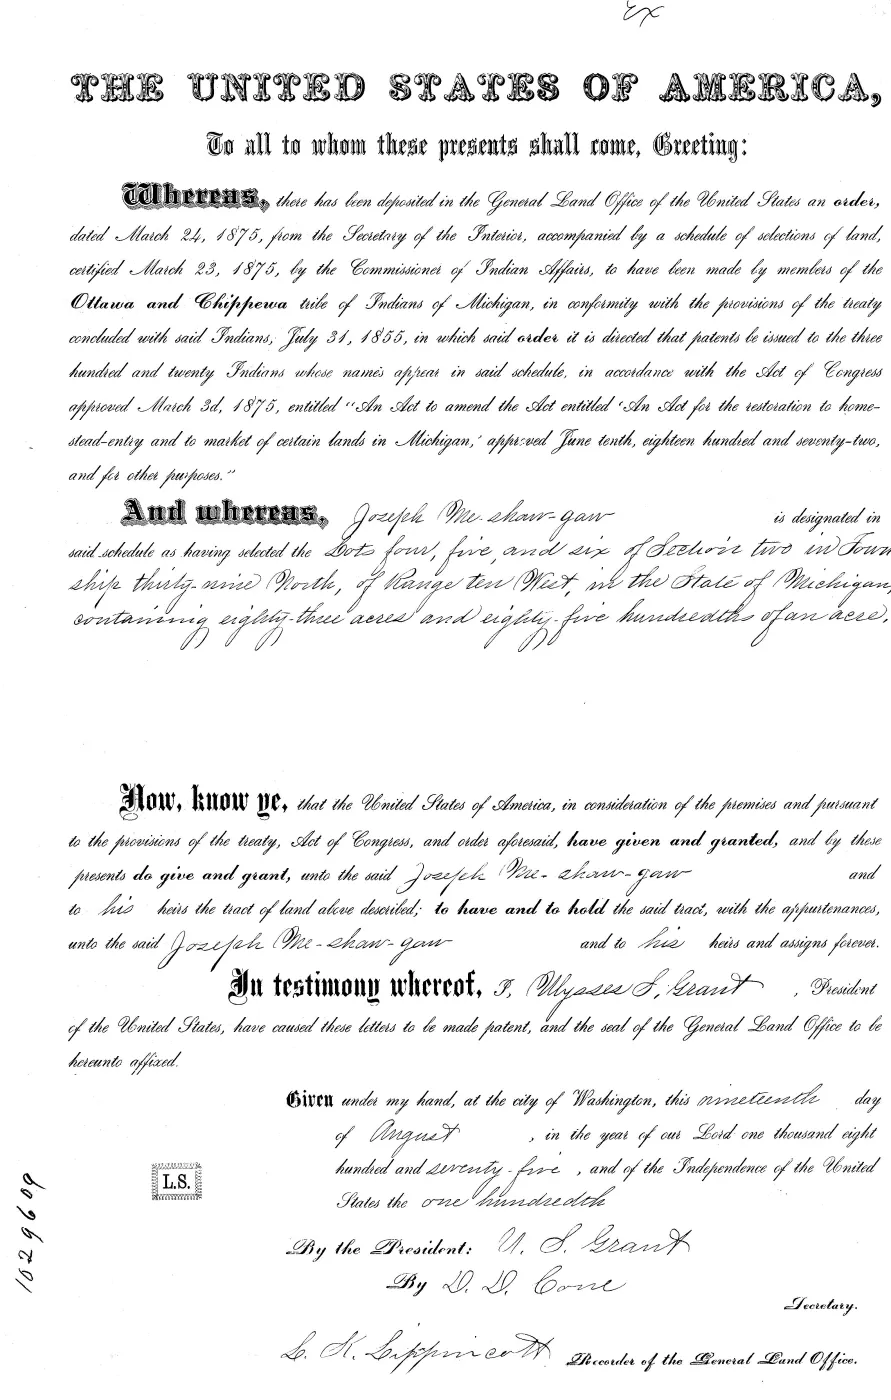 Ex
THE UNITED STATES OF AMERICA,
To all to whom these presents shall come, Greeting:
Whereas, there has been deposited in the General Land Office of the United States an order,
dated March 24, 1875, from the Secretary of the Interior, accompanied by a schedule of selections of land,
certified March 23, 1875, by the Commissioner of Indian Affairs, to have been made by members of the
Ottawa and Chippewa tribe of Indians of Michigan, in conformity with the provisions of the treaty
concluded with said Indians, July 31, 1855, in which said order it is directed that patents be issued to the three
hundred and twenty Indians whose names appear in said schedule, in accordance with the Act of Congress
approved March 3d, 1875, entitled "An Act to amend the Act entitled 'An Act for the restoration to home-
stead-entry and to market of certain lands in Michigan,' approved June tenth, eighteen hundred and seventy-two,
and for other purposes."
And whereas, Joseph Me-shaw-gaw is designated in
said schedule as having selected the Lots four, five, and six of Section two in Town
ship thirty-nine North, of Range ten West, in the State of Michigan,
containing eighty-three acres and eighty-five hundredths of an acre.
Now, know ye, that the United States of America, in consideration of the premises and pursuant
to the provisions of the treaty, Act of Congress, and order aforesaid, have given and granted, and by these
presents do give and grant, unto the said Joseph Me-shaw-gaw and
to his heirs the tract of land above described; to have and to hold the said tract, with the appurtenances,
unto the said Joseph Me-shaw-gaw and to his heirs and assigns forever.
In testimony whereof, I, Ulysses S. Grant, President
of the United States, have caused these letters to be made patent, and the seal of the General Land Office to be
hereunto affixed.
Given under my hand, at the city of Washington, this nineteenth day
of August, in the year of our Lord one thousand eight
hundred and seventy-five, and of the Independence of the United
States the one hundredth
L.S.
1029609
By the President: U. S. Grant
By D. D. Cone
Secretary.
L. K. Lippincott Recorder of the General Land Office.